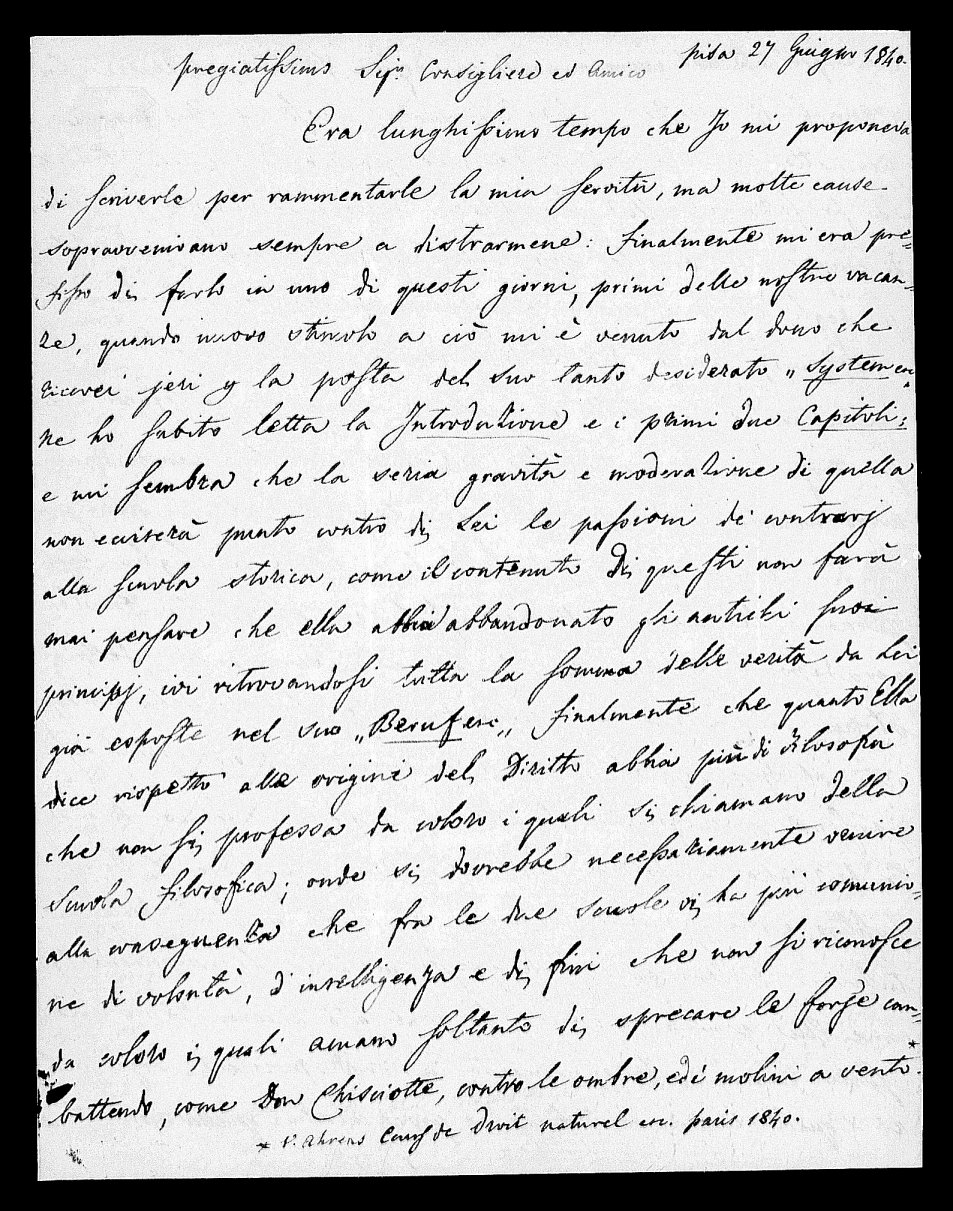 Pisa 27 Giugno 1840.
Pregiatissimo Sigr. Consigliere ed Amico
Era lunghissimo tempo che Io mi proponeva
di scriverle per rammentarle la mia servitù, ma molte cause
sopravvenivano sempre a distrarmene: finalmente mi era pre=
fisso di farlo in uno di questi giorni, primi delle nostre vacan=
ze, quando nuovo stimolo a ciò mi è venuto dal dono che
ricevei jeri per la posta del suo tanto desiderato „System ec„
ne ho subito letta la Introduzione e i primi due Capitoli;
e mi sembra che la seria gravità e moderazione di quella
non ecciterà punto contro di Lei le passioni de' contrarj
alla scuola storica, come il contenuto di questi non farà
mai pensare che ella abbia abbandonato gli antichi suoi
principj, ivi ritrovandosi tutta la somma delle verità da Lei
già esposte nel suo „Beruf ec„ finalmente che quanto Ella
dice rispetto alle origini del Diritto abbia più di filosofia
che non si professa da coloro i quali si chiamano della
scuola filosofica; onde si dovrebbe necessariamente venire
alla conseguenza che fra le due scuole vi ha più comunio=
ne di volontà, d'intelligenza e di fini che non si riconosce
da coloro i quali amano soltanto di sprecare le forze com=
battendo, come Don Chisciotte, contro le ombre, ed i molini a vento.*
* V. Ahrens Cours de Droit naturel ec. Paris 1840.